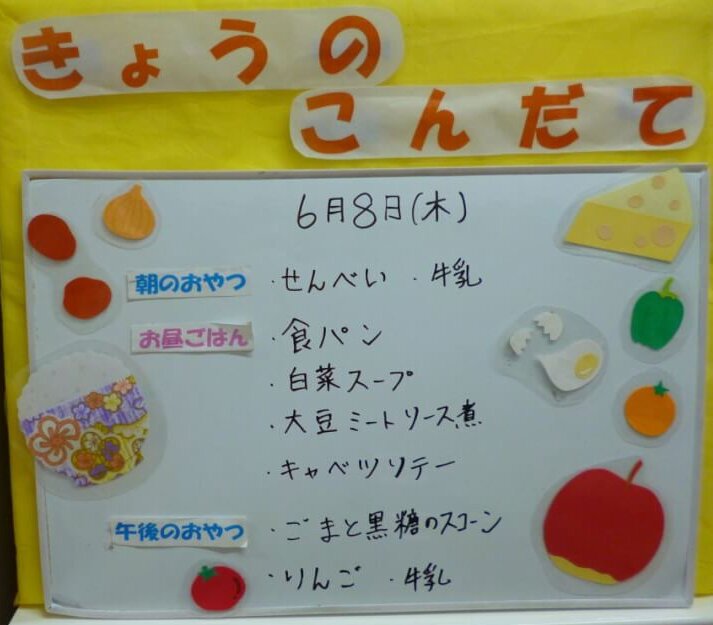 きょうの
こんだて
6月8日(木)
朝のおやつ ・せんべい ・牛乳
お昼ごはん ・食パン
・白菜スープ
・大豆ミートソース煮
・キャベツソテー
午後のおやつ ・ごまと黒糖のスコーン
・りんご ・牛乳